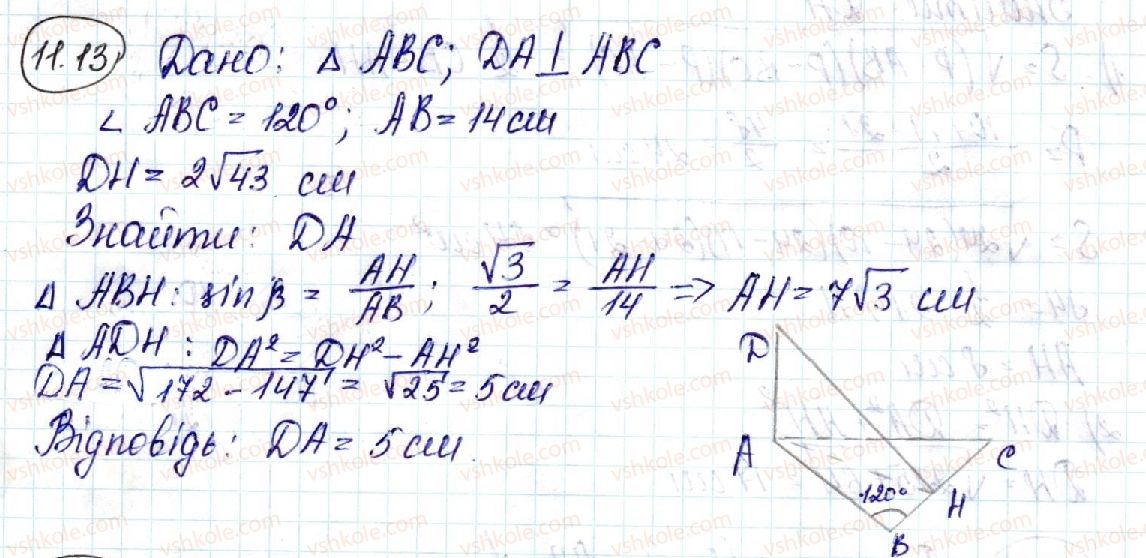 11.13 Дано: Δ ABC; DA⊥ABC
∠ ABC = 120°; AB = 14 см
DH = 2√43 см
Знайти: DA
Δ ABH: sin β = AH/AB; √3/2 = AH/14 => AH = 7√3 см
Δ ADH: DA² = DH² - AH²
DA = √172 - 147 = √25 = 5 см
Відповідь: DA = 5 см.
D
A
C
120°
H
B